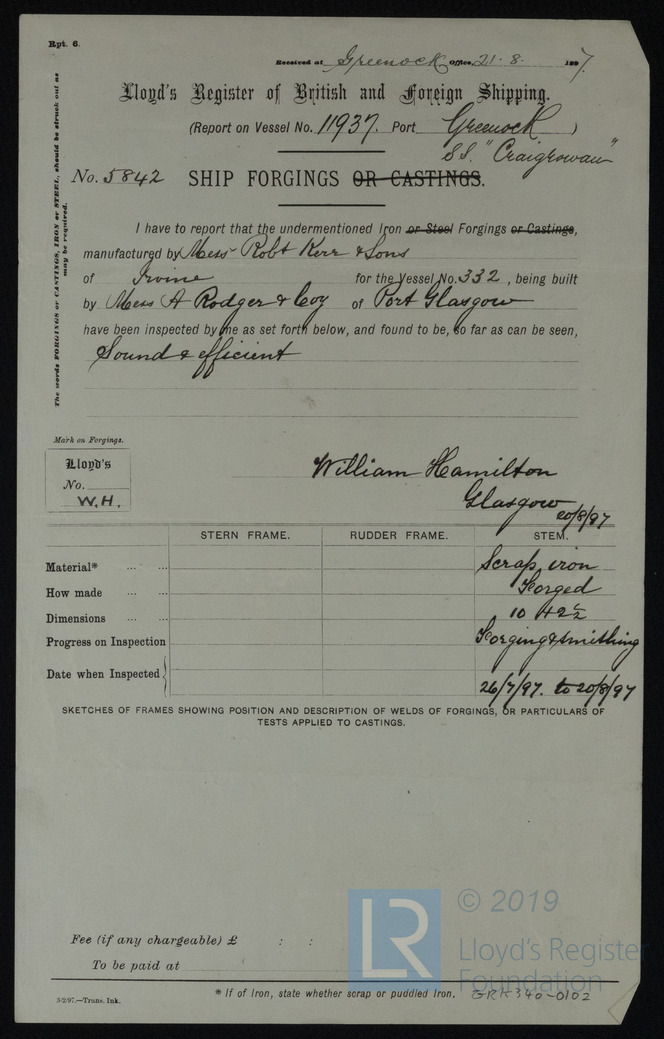 Rpt. 6.
Received at Greenock Office, 21. 8. 1897.
Lloyd's Register of British and Foreign Shipping.
(Report on Vessel No. 11937. Port Greenock )
S.S. "Craigrowan"
No. 5842 SHIP FORGINGS OR CASTINGS.
The words FORGINGS or CASTINGS, IRON or STEEL, should be struck out as
may be required.
I have to report that the undermentioned Iron or Steel Forgings or Castings,
manufactured by Mess Robt Kerr & Sons
of Irvine for the Vessel No. 332 , being built
by Mess A Rodger & Coy of Port Glasgow
have been inspected by me as set forth below, and found to be, so far as can be seen,
Sound & efficient
Mark on Forgings.
Lloyd's
No.
W.H.
William Hamilton
Glasgow 20/8/97
STERN FRAME. RUDDER FRAME. STEM.
Material* ... ... Scrap iron
How made ... ... Forged
Dimensions ... ... 10
Progress on Inspection Forging & smithing
Date when Inspected 26/7/97. to 20/8/97
SKETCHES OF FRAMES SHOWING POSITION AND DESCRIPTION OF WELDS OF FORGINGS, OR PARTICULARS OF
TESTS APPLIED TO CASTINGS.
© 2019
LR
Lloyd's Register
Foundation
Fee (if any chargeable) £ : :
To be paid at
* If of Iron, state whether scrap or puddled Iron. GRK340-0102
3/2/97.—Trans. Ink.